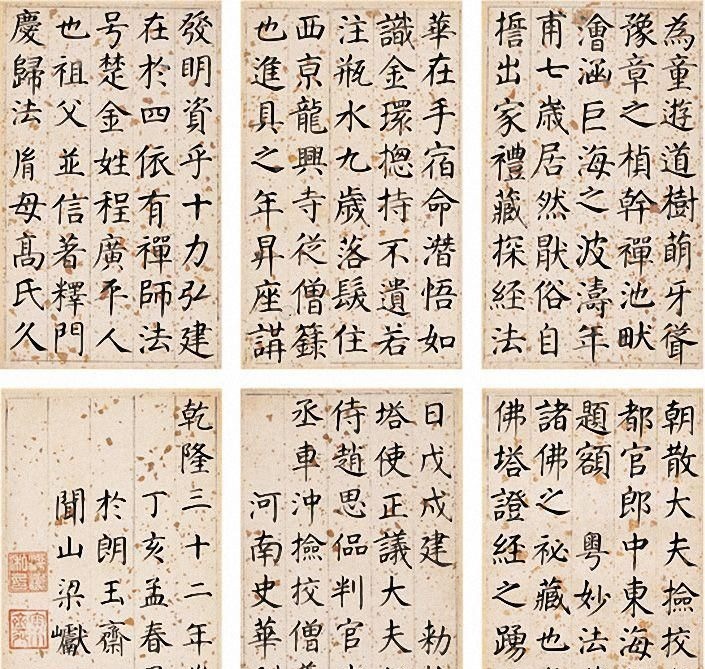 為童遊道樹萌牙聳
豫章之楨幹禪池畎
澮涵巨海之波濤年
甫七歲居然猒俗自
誓出家禮藏探經法
華在手宿命潛悟如
識金環揔持不遺若
注瓶水九歲落髮住
西京龍興寺從僧籙
也進具之年昇座講
發明資乎十力弘建
在於四依有禪師法
号楚金姓程廣平人
也祖父並信著釋門
慶歸法胤母高氏久
朝散大夫撿挍
都官郎中東海
題額 粵妙法
諸佛之祕藏也
佛塔證經之踴
日戊戌建 勅
塔使正議大夫
侍趙思偘判官
丞車沖撿挍僧
河南史華
乾隆三十二年
丁亥孟春
於朗玉齋
聞山梁巘